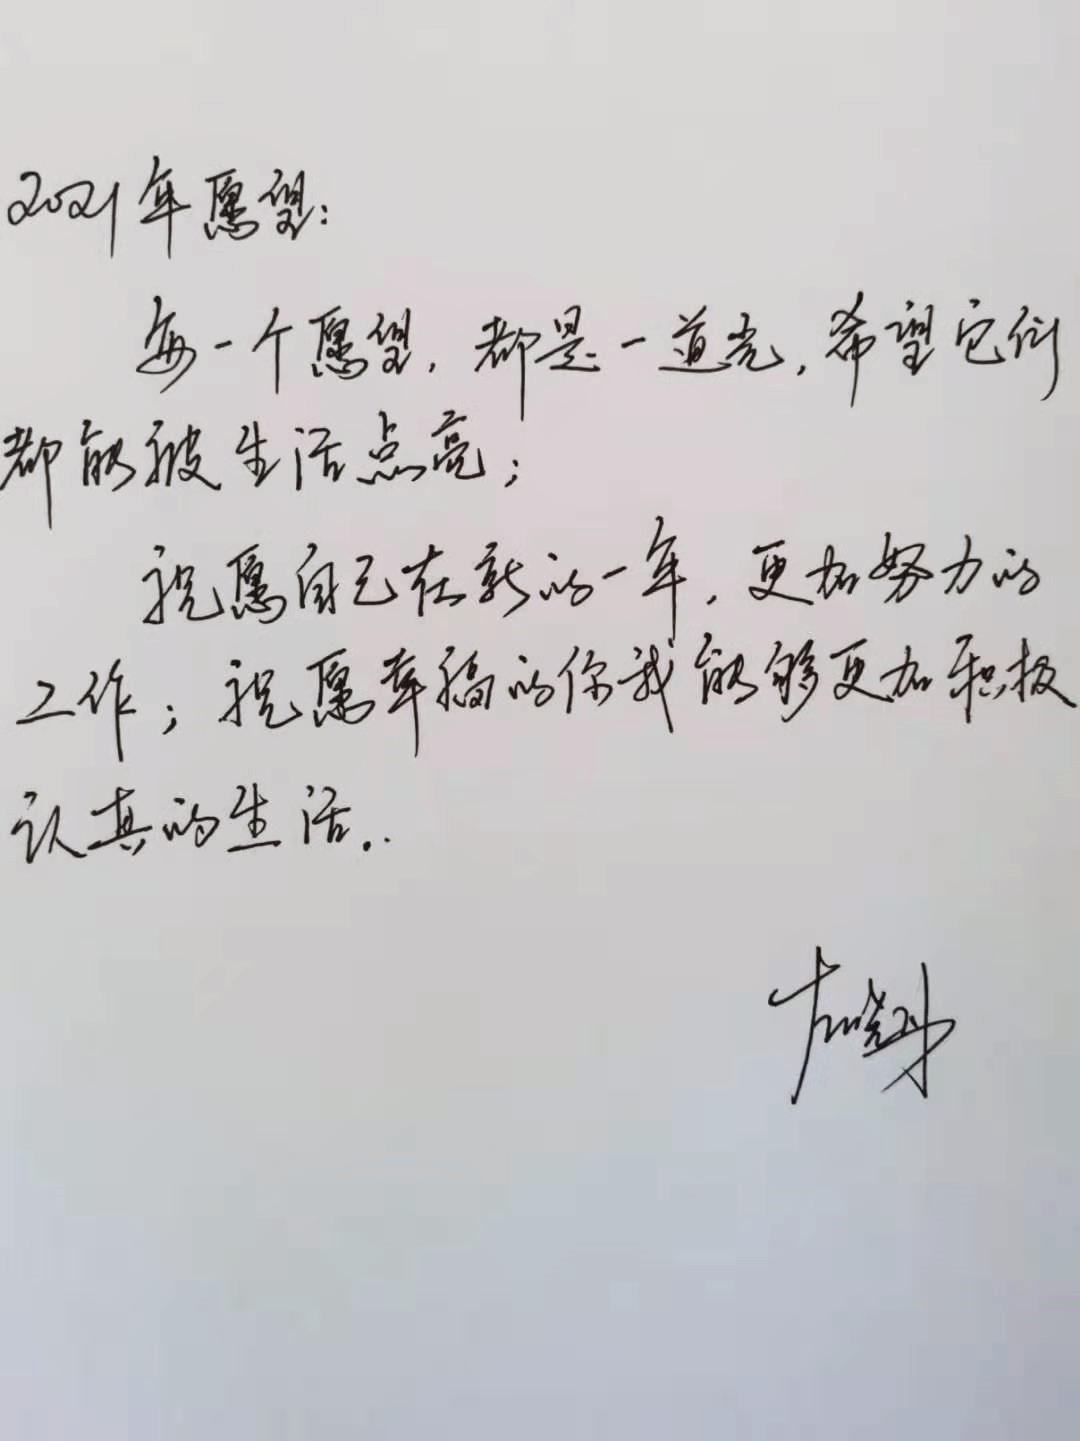 2021年愿望:
每一个愿望,都是一道光,希望它们
都能被生活点亮;
祝愿自己在新的一年,更加努力的
工作;祝愿幸福的你我能够更加积极
认真的生活..